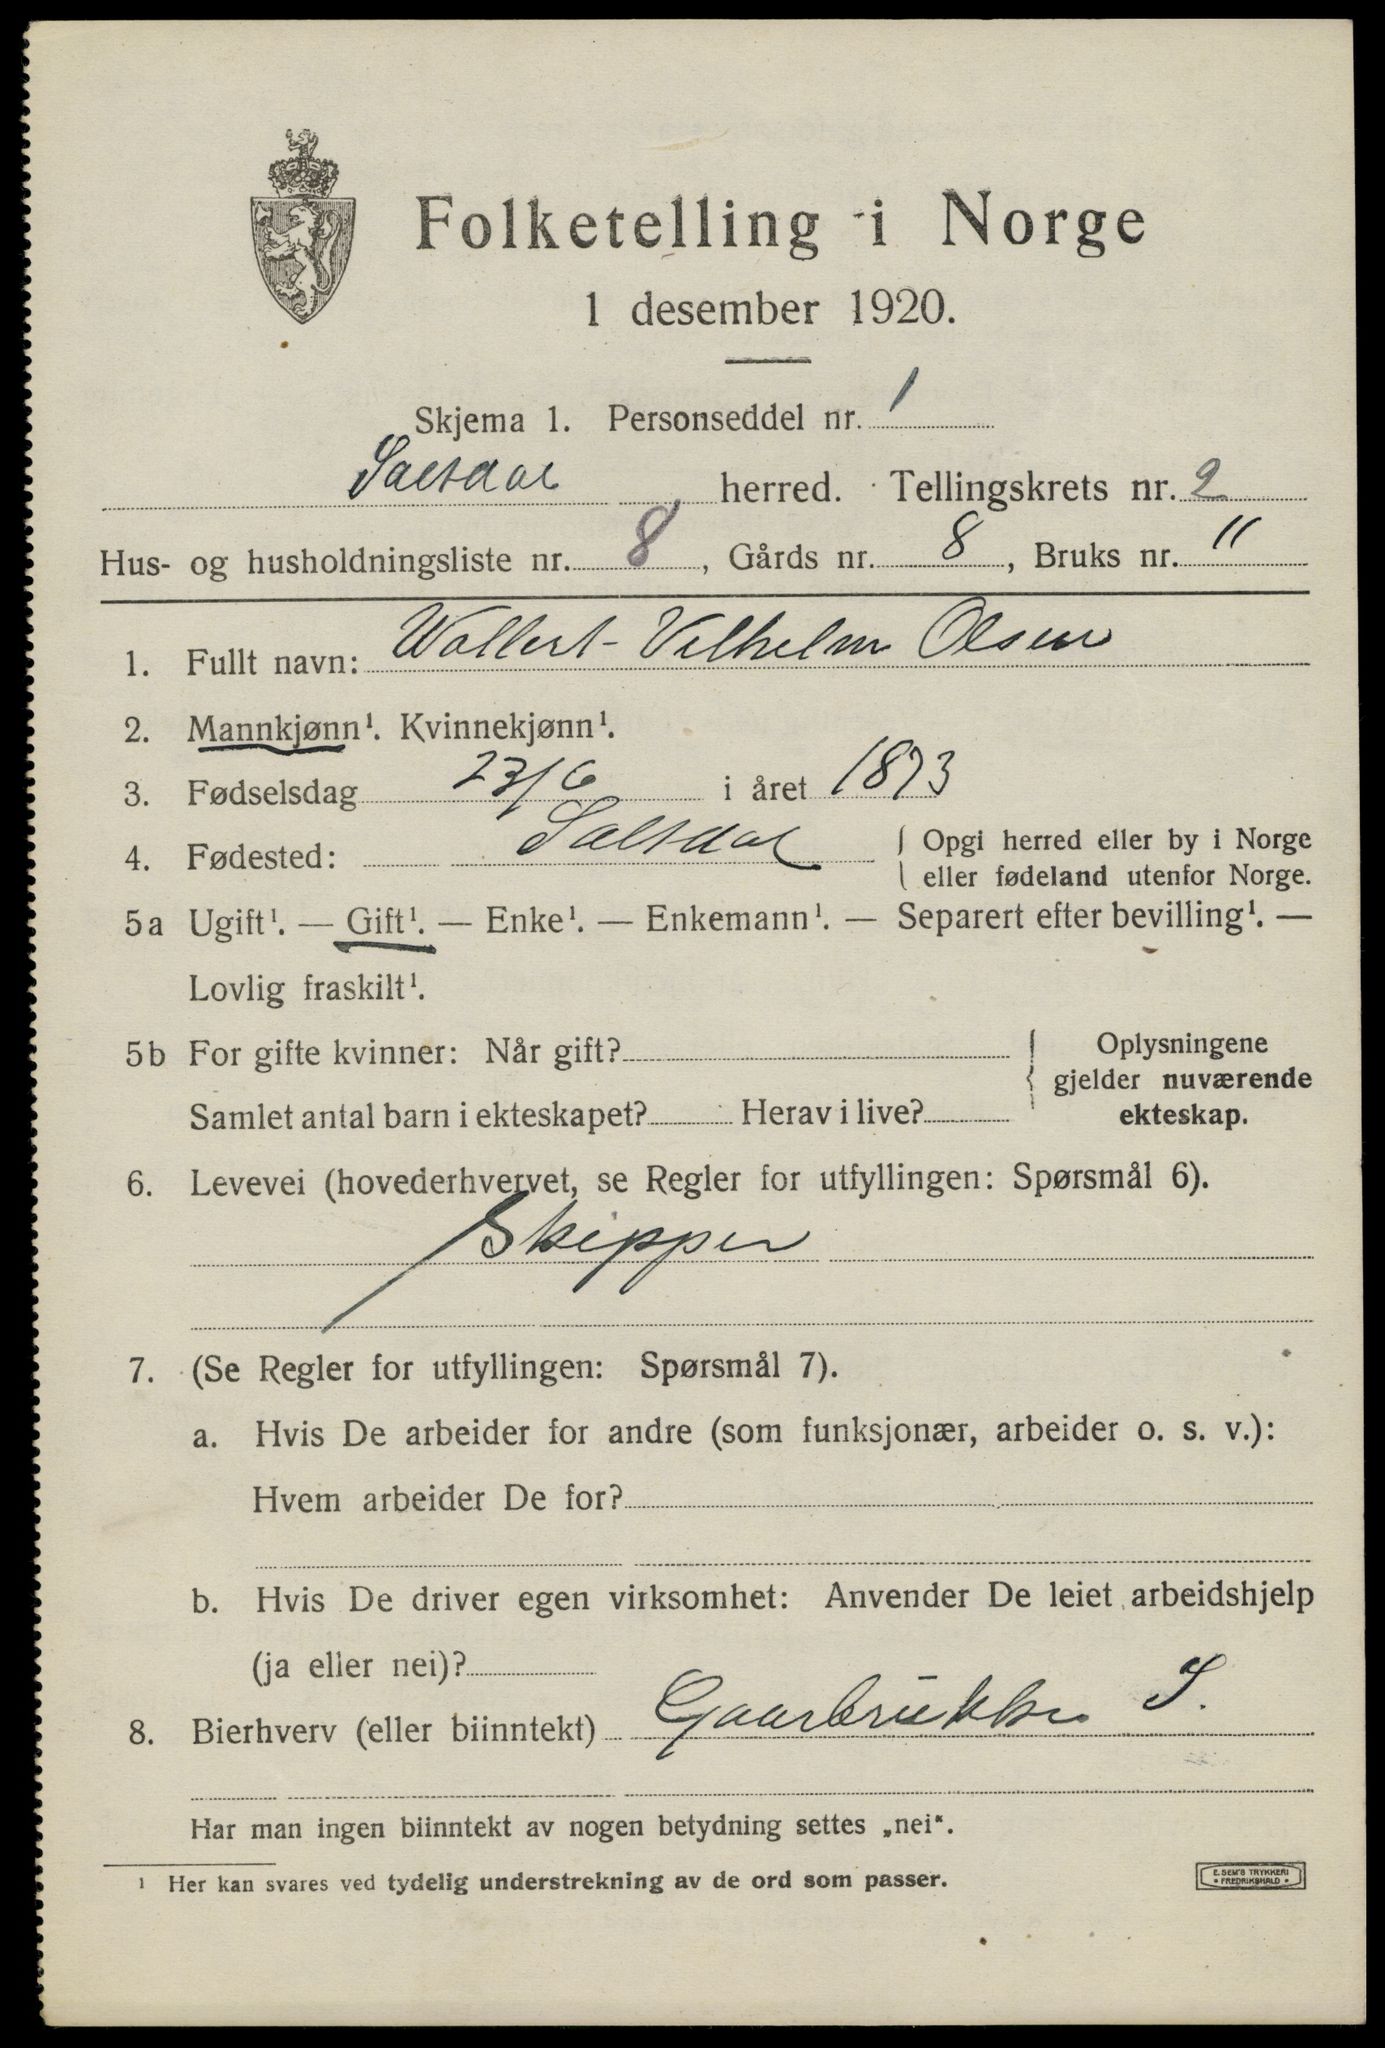 Folketelling i Norge
1 desember 1920.
Skjema 1. Personseddel nr. 1
Saltdal herred. Tellingskrets nr. 2
Hus- og husholdningsliste nr. 8, Gårds nr. 8, Bruks nr. 11
1. Fullt navn: Wallert Vilhelm Olsen
2. Mannkjønn¹. Kvinnekjønn¹.
3. Fødselsdag 23/6 i året 1873
4. Fødested: Saltdal { Opgi herred eller by i Norge
eller fødeland utenfor Norge.
5a Ugift¹. — Gift¹. — Enke¹. — Enkemann¹. — Separert efter bevilling¹. —
Lovlig fraskilt¹.
5b For gifte kvinner: Når gift? { Oplysningene
gjelder nuværende
Samlet antal barn i ekteskapet? Herav i live? ekteskap.
6. Levevei (hovederhvervet, se Regler for utfyllingen: Spørsmål 6).
Skipper
7. (Se Regler for utfyllingen: Spørsmål 7).
a. Hvis De arbeider for andre (som funksjonær, arbeider o. s. v.):
Hvem arbeider De for?
b. Hvis De driver egen virksomhet: Anvender De leiet arbeidshjelp
(ja eller nei)?
8. Bierhverv (eller biinntekt) Gaarbruker S.
Har man ingen biinntekt av nogen betydning settes „nei“.
¹ Her kan svares ved tydelig understrekning av de ord som passer.
E. SEM'S TRYKKERI
• FREDRIKSHALD •